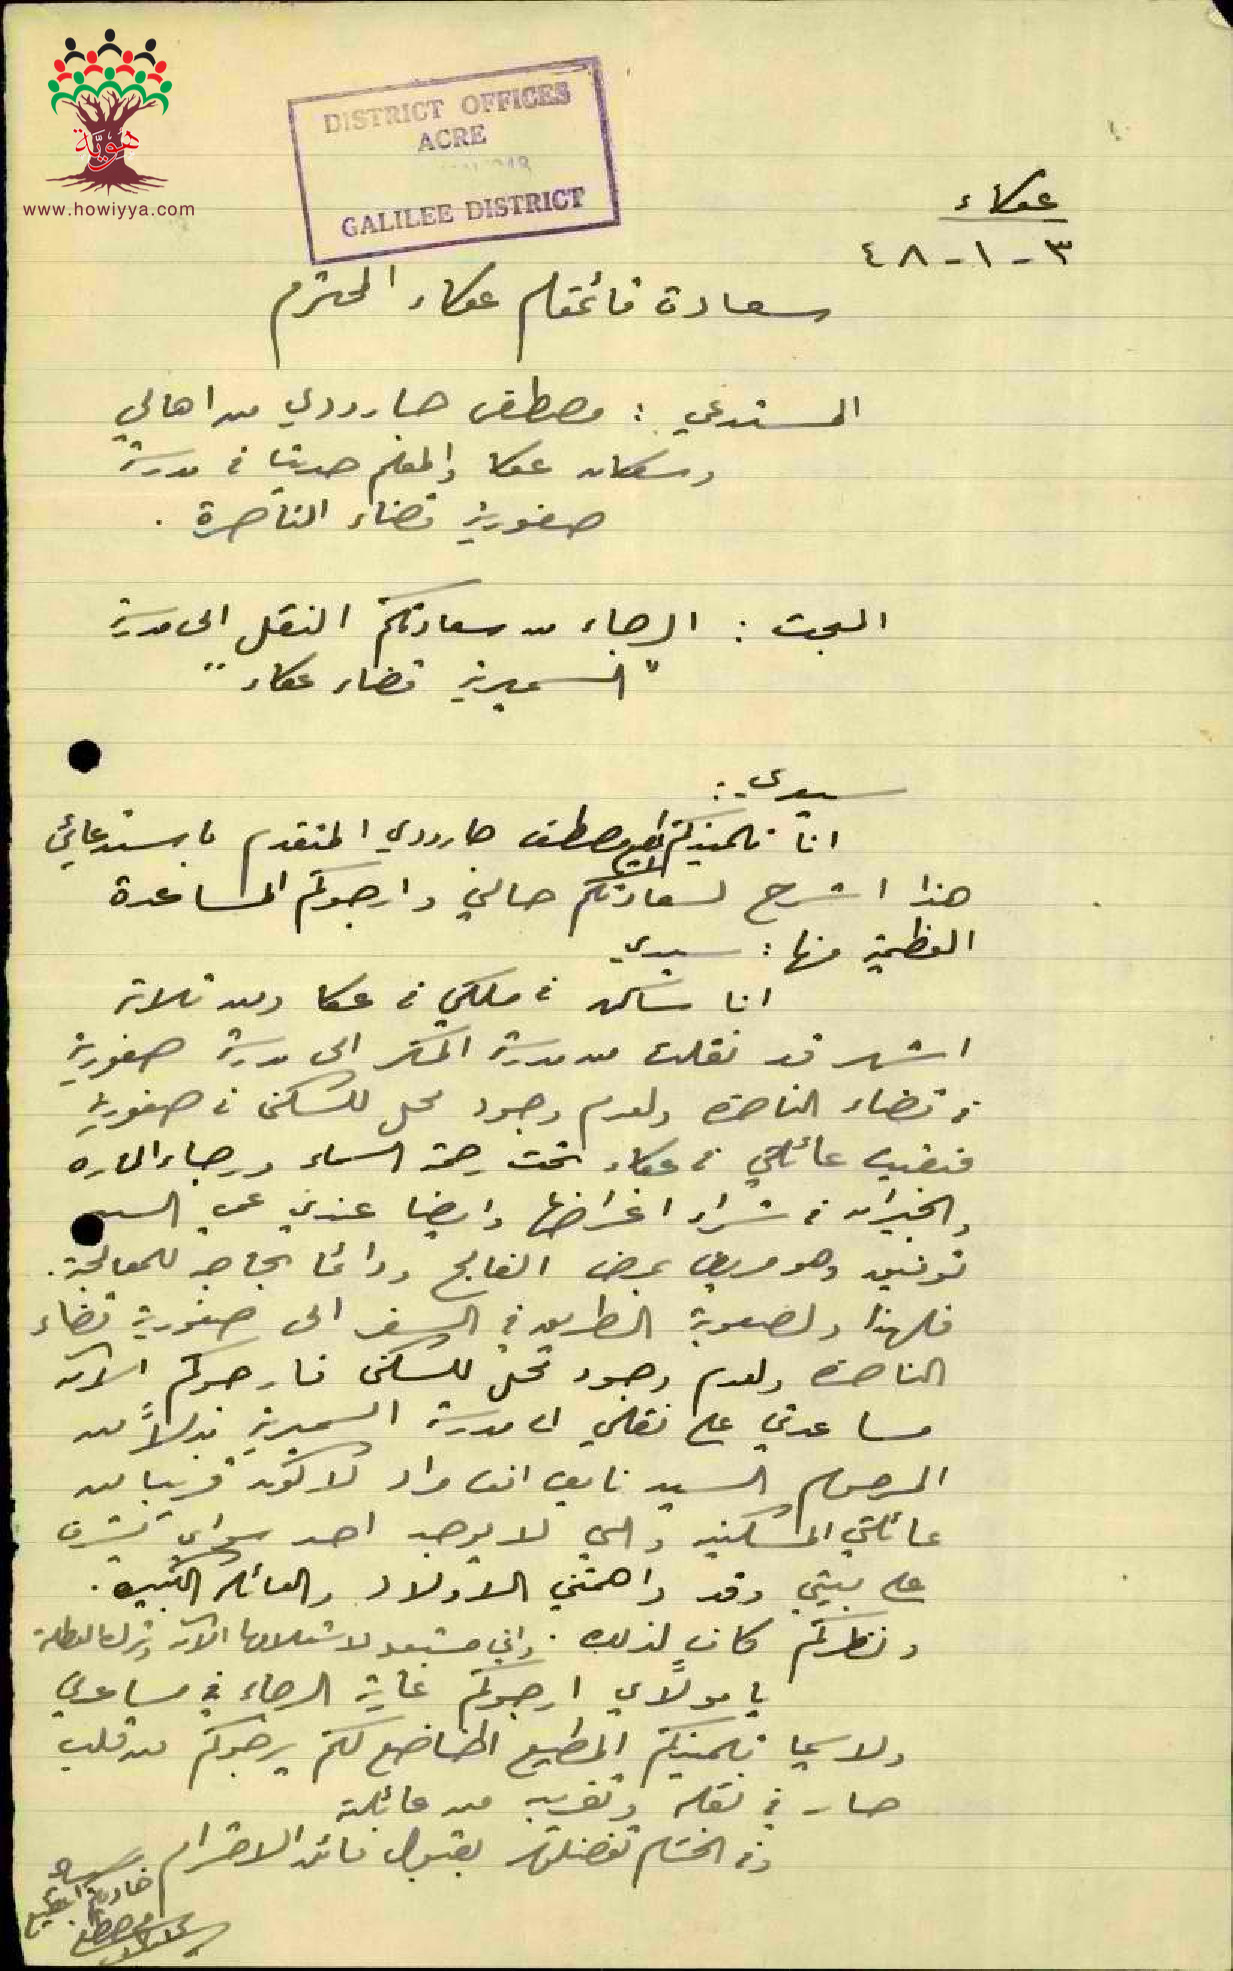 هوية
www.howiyya.com
DISTRICT OFFICES
ACRE
GALILEE DISTRICT
عكاء
٣ - ١ - ٤٨
سعادة قائمقام عكاء المحترم
المستدعي : مصطفى جارودي من اهالي
وسكان عكا والمعلم حديثا في مدرسة
صفورية قضاء الناصرة .
البحث : الرجاء من سعادتكم النقل الى مدرسة
" السميرية قضاء عكاء "
سيدي :
انا تلميذكم مصطفى جارودي المتقدم باستدعائي
هذا اشرح لسعادتكم حالتي وارجوكم المساعدة
العظيمة منها : سيدي
انا ساكن في ملكي في عكا ومن ثلاثة
اشهر قد نقلت من مدرسة المكر الى مدرسة صفورية
في قضاء الناصرة ولعدم وجود محل للسكن في صفورية
فبقيت عائلتي في عكاء تحت رحمة السماء ورجاء الماره
والجيران في شراء اغراضها وايضا عندي عمي السيد
توفيق وهو مريض بمرض الفالج ودائما بحاجة للمعالجة .
فلهذا ولصعوبة الطريق في السفر الى صفورية قضاء
الناصرة ولعدم وجود محل للسكن فارجوكم الآن
مساعدتي على نقلي الى مدرسة السميرية بدلاً من
المرحوم السيد نايف مراد لاكون قريبا من
عائلتي المسكينة والتي لا يوجد احد سواي يشرف
على بيتي وقد داهمتني الاولاد والعائلة الكبيره .
ونظركم كاف لذلك . واني مستعد لاستلامها الآن
يا مولاي ارجوكم غاية الرجاء في مساعدتي
ولا سيما تلميذكم المطيع الخاضع لكم يرجوكم من قلب
حار في نقله وتقريبه من عائلته
وفي الختام تفضلوا بقبول فائق الاحترام سيدي
خادمكم المطيع
مصطفى